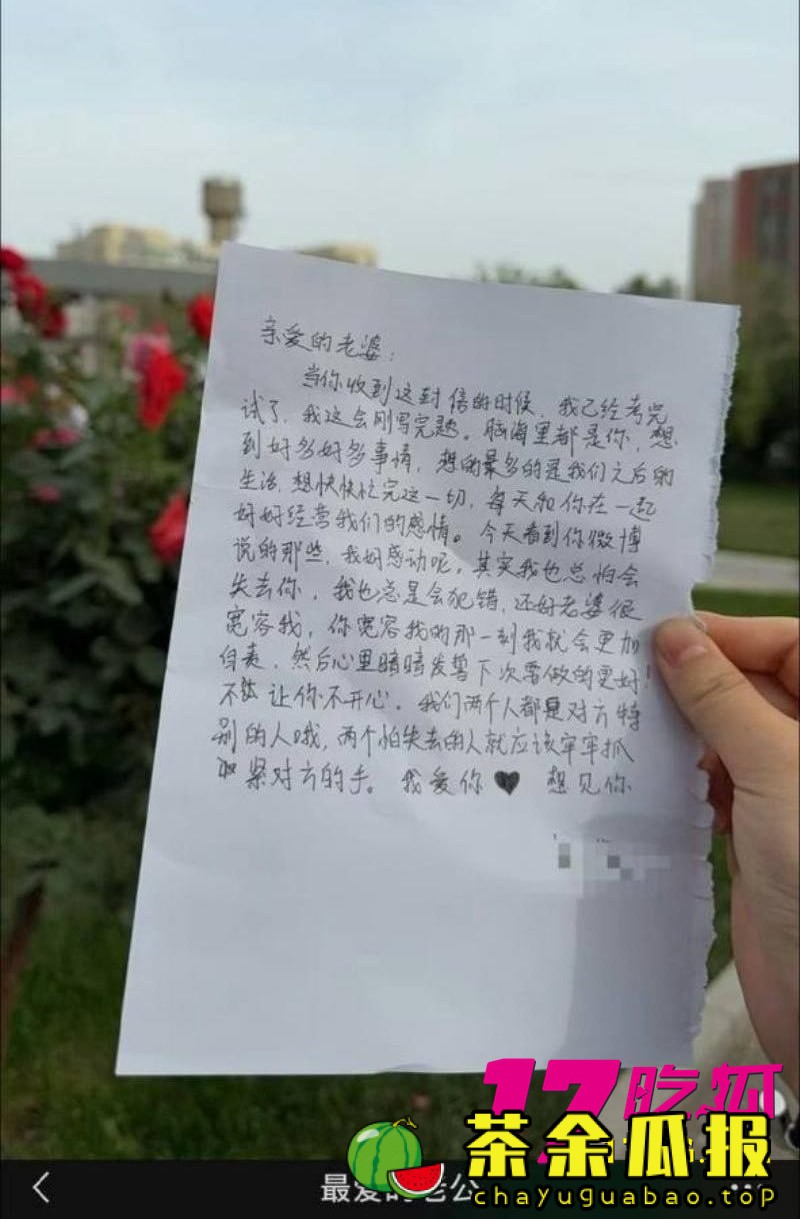 亲爱的老婆：
当你收到这封信的时候，我已经考完
试了，我这会刚写完题。脑海里都是你，想
到好多好多事情，想的最多的是我们之后的
生活，想快快忙完这一切，每天和你在一起
好好经营我们的感情。今天看到你微博
说的那些，我好感动呢，其实我也总怕会
失去你，我也总是会犯错，还好老婆很
宽容我，你宽容我的那一刻我就会更加
自责，然后心里暗暗发誓下次要做的更好！
不能让你不开心。我们两个人都是对方特
别的人哦，两个怕失去的人就应该牢牢抓
紧对方的手。我爱你♥ 想见你
17吃瓜
茶余瓜报
chayuguabao.top
最爱的老公